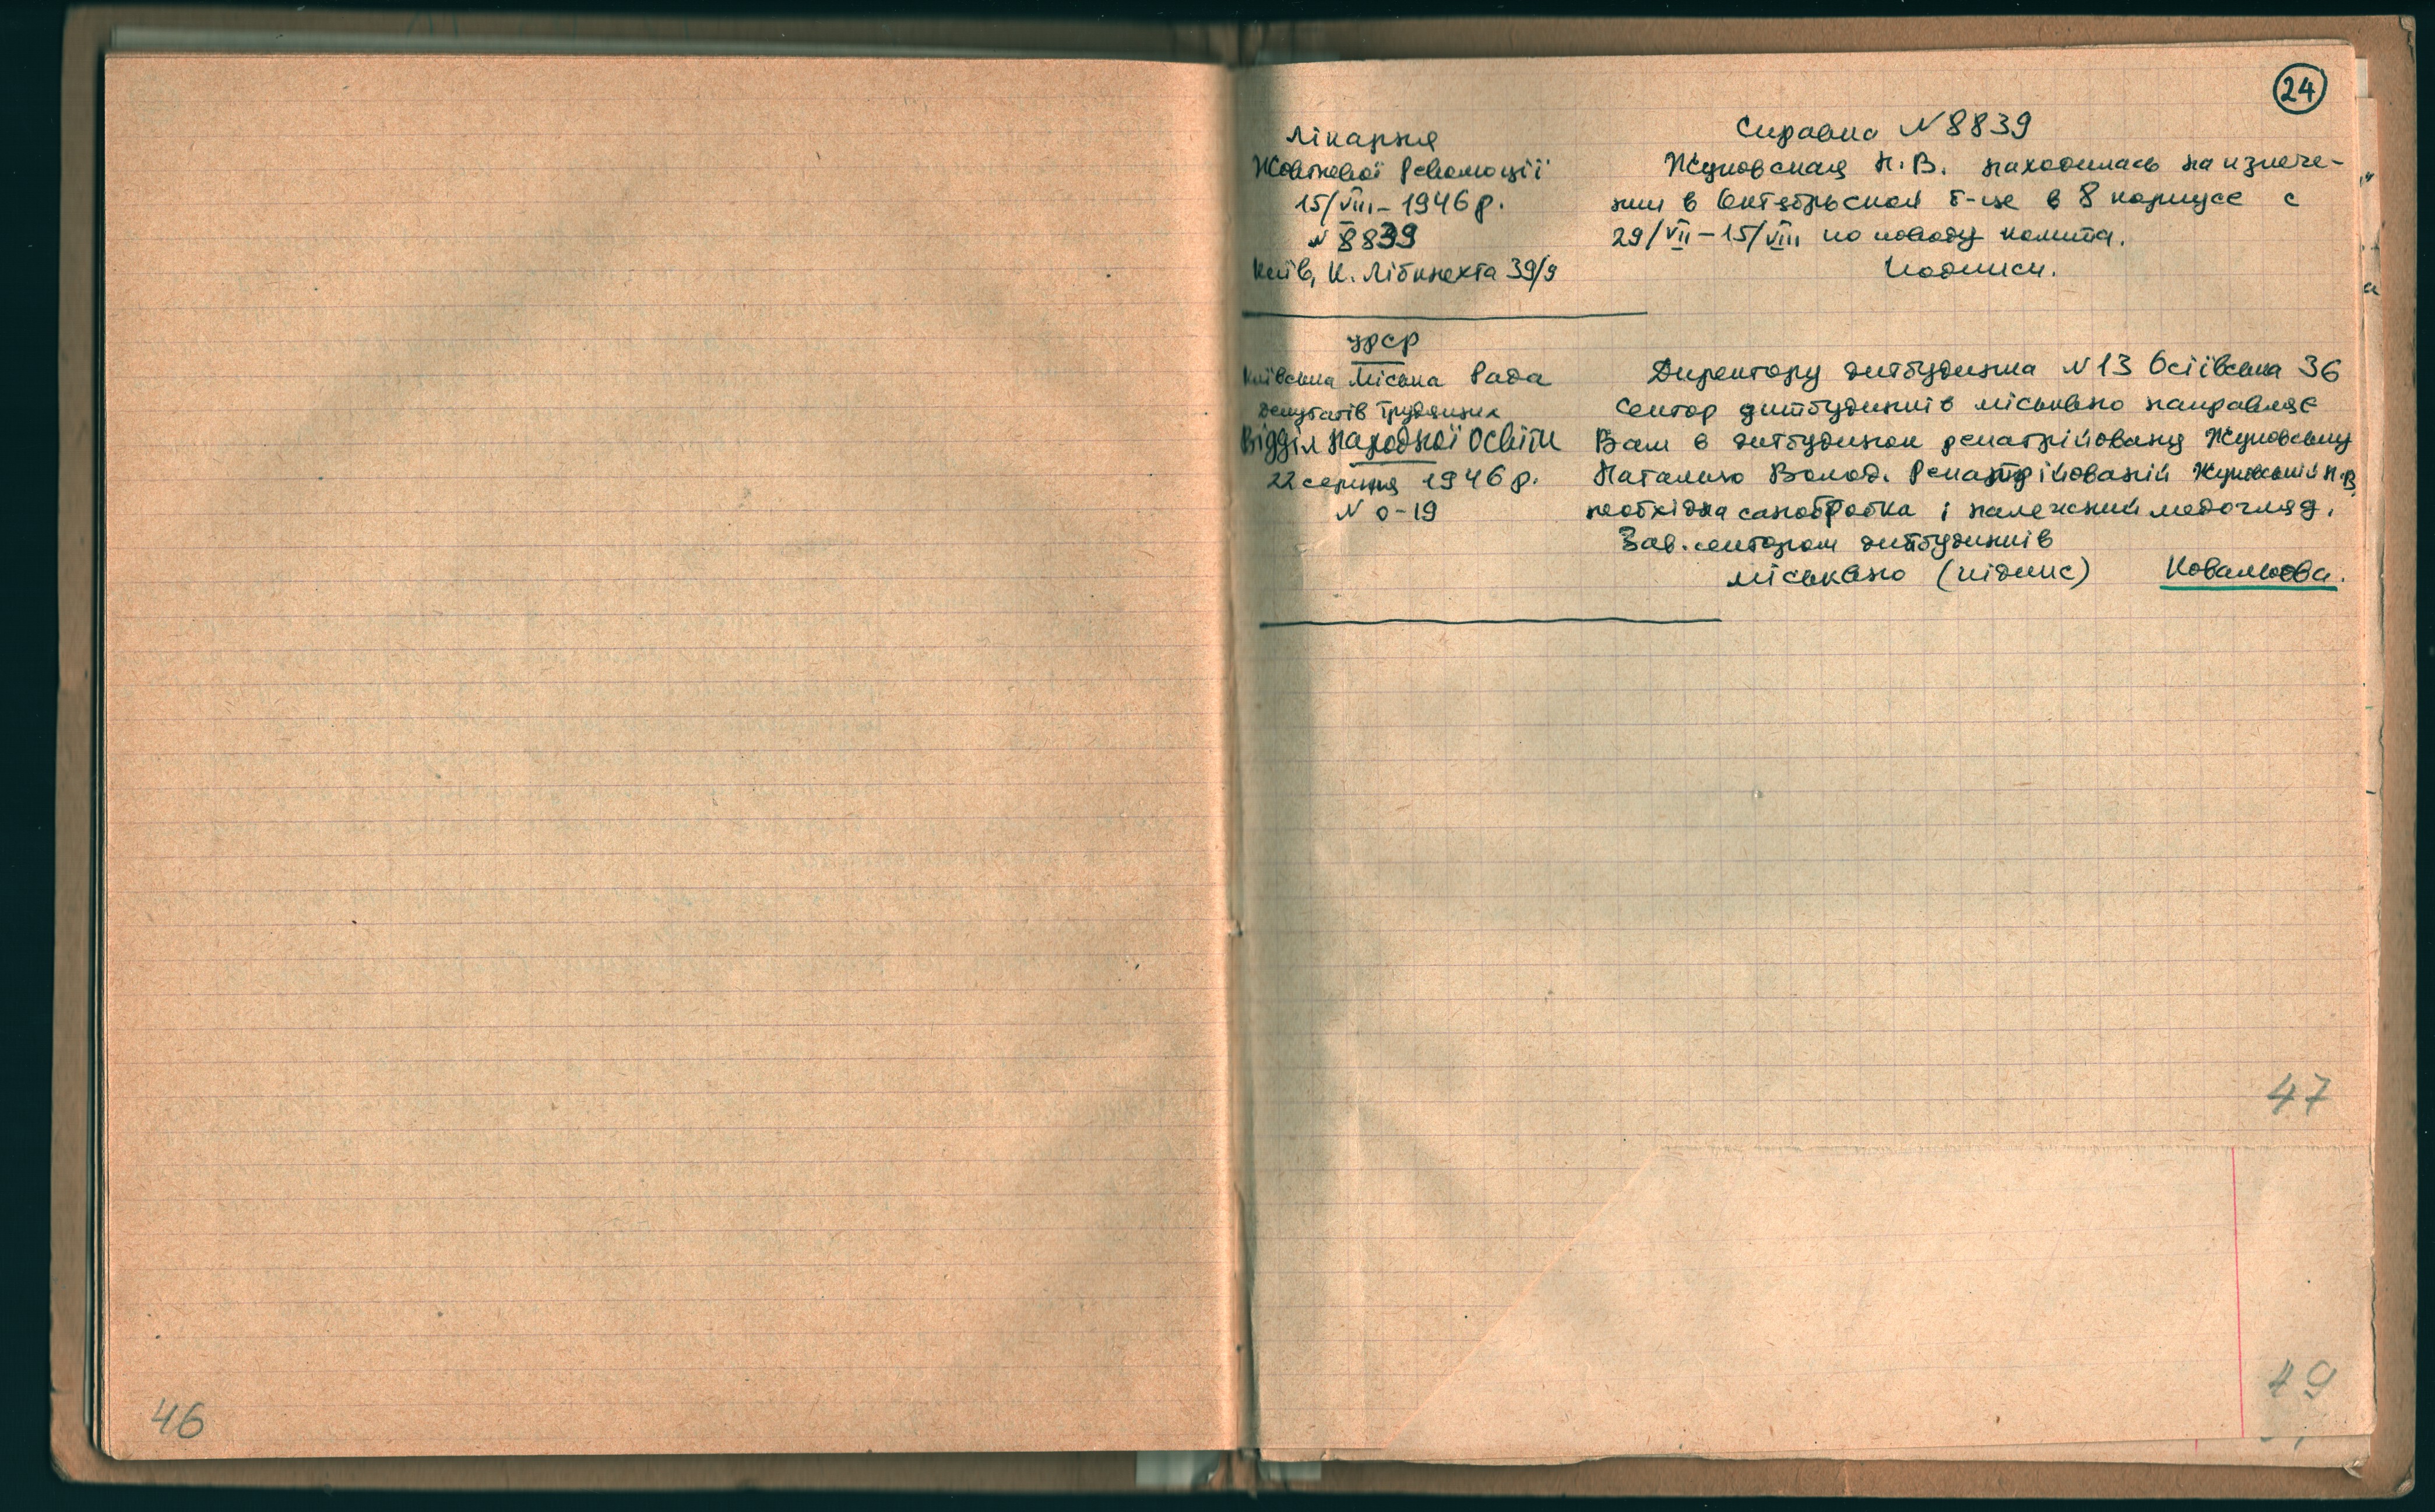 24
Лікарня
Жовтневої Революції
15/VIII – 1946 р.
N 8839
Київ, К. Лібкнехта 39/9
Справка N 8839
Жуковская Н.В. находилась на излече-
нии в Октябрьской б-це в 8 корпусе с
29/VII – 15/VIII по поводу колита.
Подписи.
УРСР
Київська Міська Рада
Депутатів Трудящих
Відділ народної освіти
22 серпня 1946 р.
N 0-19
Директору дитбудинка N 13 Осіївська 36
Сектор дитбудинків міськвно направляє
Вам в дитбудинок репатрійовану Жуковську
Наталию Волод. Репатрійованій Жуковській Н.В.
необхідна санобробка і належний медогляд.
Зав. сектором дитбудинків
міськвно (підпис) Ковальова.
47
49
46